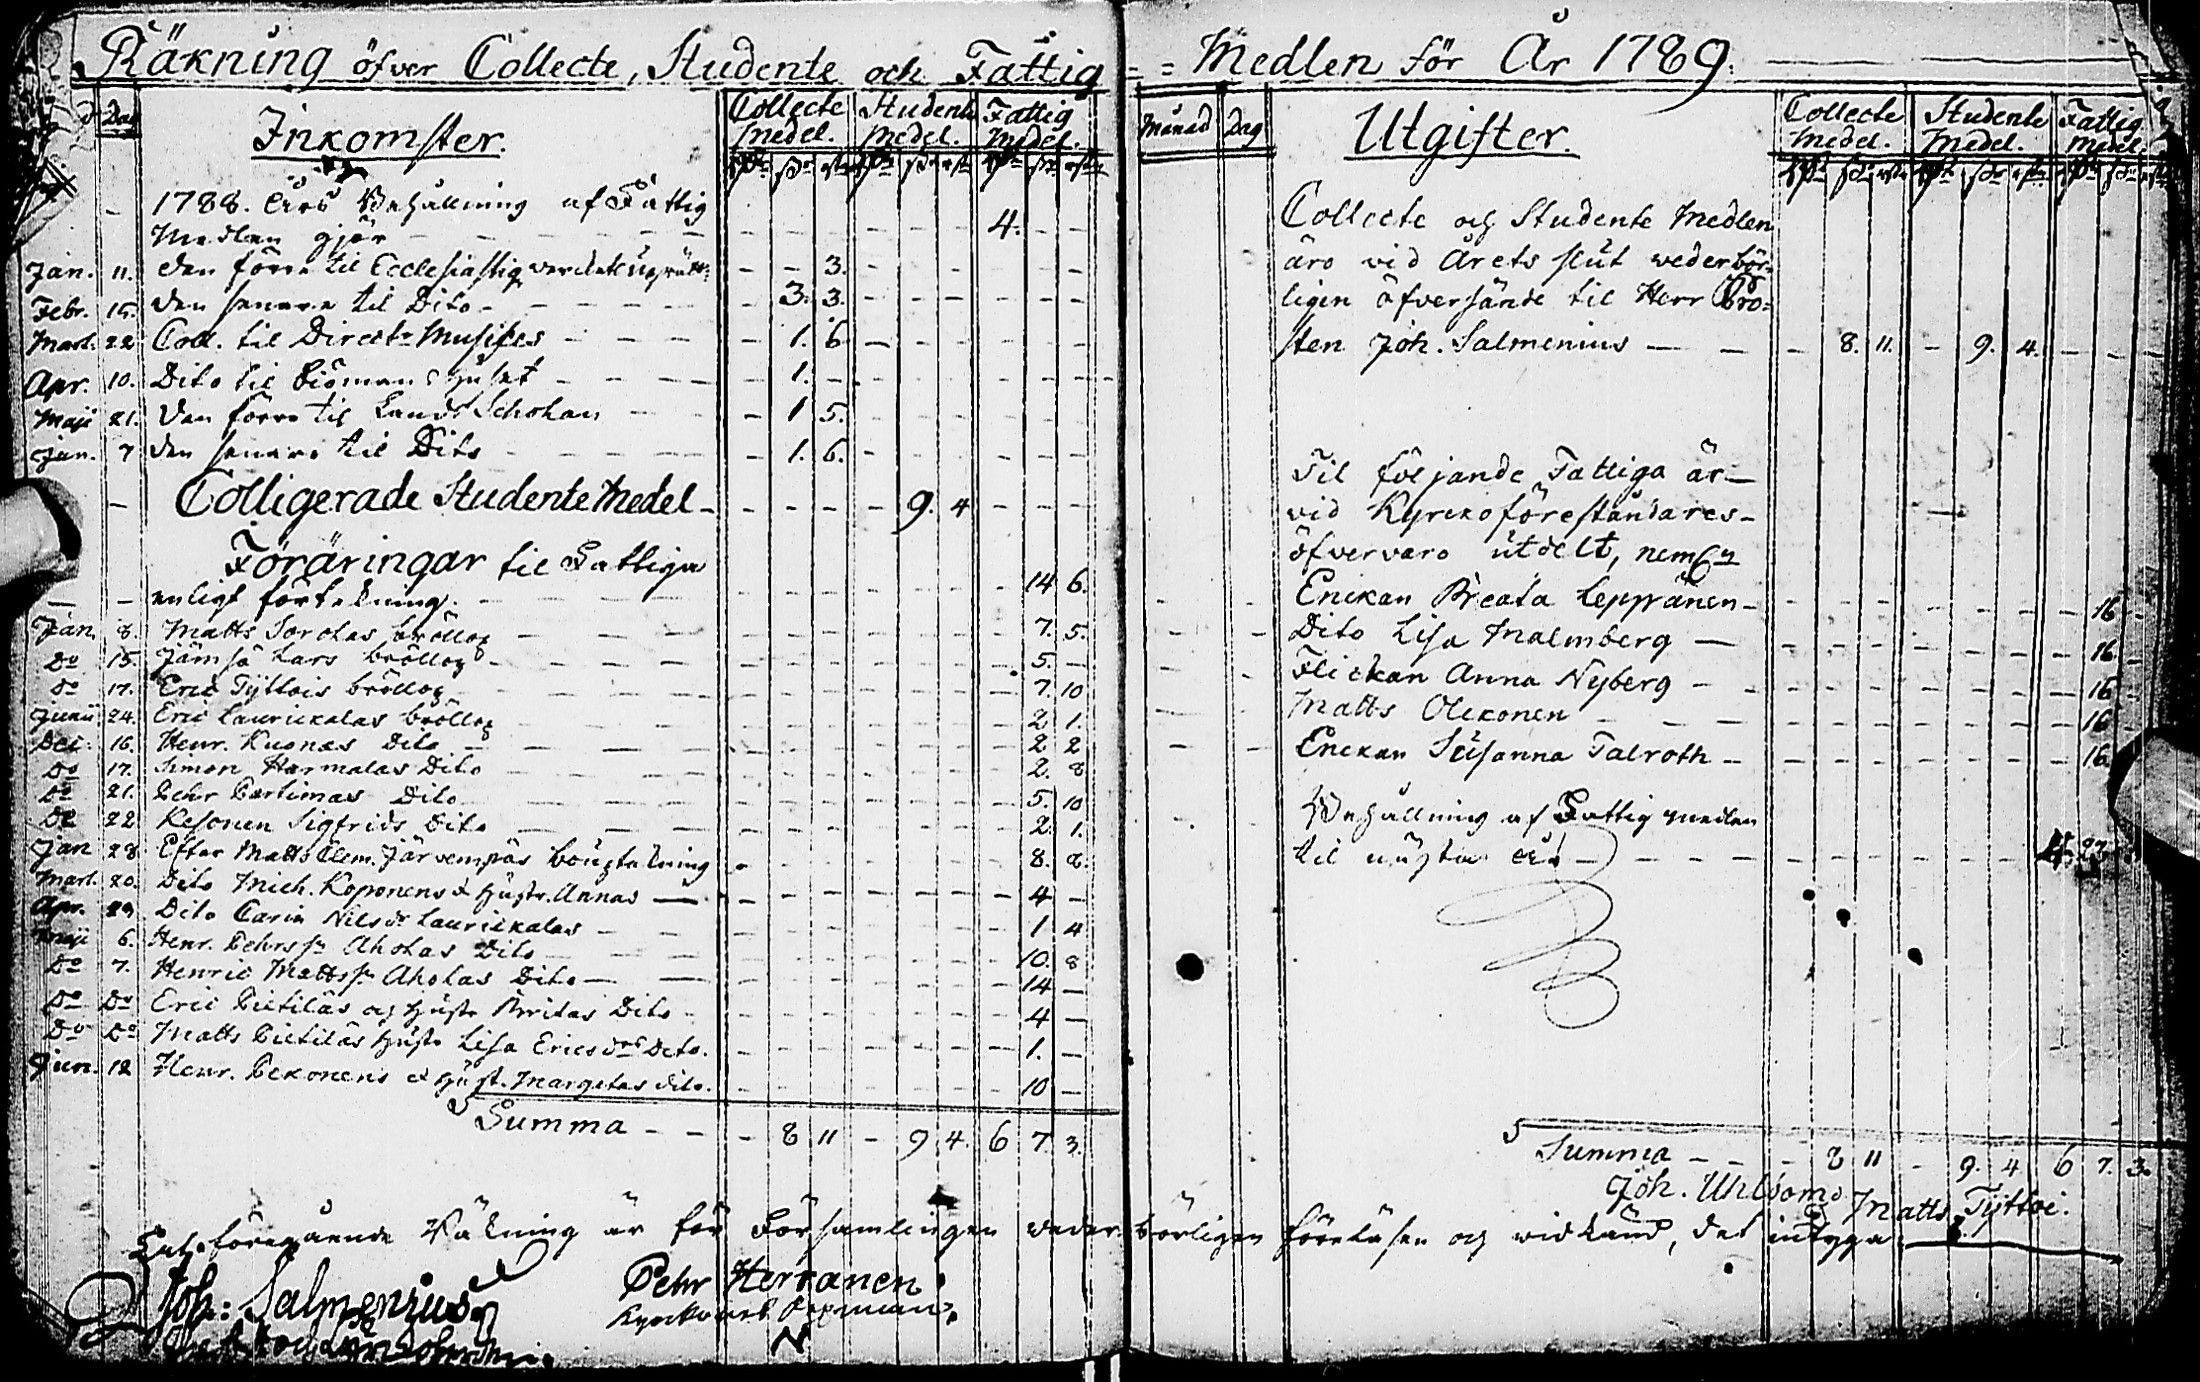 Räkning öfver Collecte, Studente och Fattig = Medlen för År 1789.
Dag
Inkomster.
Collecte Medel.
Studente Medel.
Fattig Medel.
1788. Års Behållning af Fattig
Medlen gjör - 4. - -
Jan. 11. den förra til Ecclesiastiq verckets - - 3.
Febr. 15. den senare til Dito - - 3. 3.
Mart. 22 Coll. til Direct. Musices - - 1. 6
Apr. 10. Dito til - 1. -
Maji 21. den förra til Lands Scholan - 1 5.
Jun. 7 den senare til Dito - 1. 6.
Colligerade Studente Medel - - 9. 4
Föräringar til Fattiga
enligt förtekning. - 14 6.
Jan. 8. Matts Sorolas bröllop - 7. 5.
Do 15. Jämsä Lars bröllop - 5. -
Do 17. Eric Tyttois bröllop - 7. 10
Junii 24. Eric Laurickalas bröllop - 2 1.
Dec. 16. Henr. Kuonas Dito - 2 2
Do 17. Simon Harmalas Dito - 2. 8
Do 21. Pehr Partimas Dito - 5. 10
Do 22 Kesonen Sigfrids Dito - 2. 1.
Jan 28 Efter Matts Clem. Järvenpäs - 8. 8.
Mart. 20. Dito Mich. Koponens & Hustr. Annas - 4 -
Apr. 29 Dito Carin Nilsdr Laurickalas - 1 4
Maji 6. Henr. Pehrss. Aholas Dito - 10. 8
Do 7. Henric Mattss. Aholas Dito - 14 -
Do Do Eric Pietiläs och Hustr Britas Dito - 4 -
Do Do Matts Pietiläs Hustr Lisa Ericsdrs Dito. - 1. -
Jun. 12 Henr. Pekonens & Hust. Margetas dito. - 10 -
Summa - - - 8 11 - 9 4. 6 7. 3.
Månad Dag
Utgifter.
Collecte Medel.
Studente Medel.
Fattig Medel.
Collecte och Studente Medlen
äro vid Årets slut vederbör=
ligen öfversände til Herr Pro=
sten Joh. Salmenius - - 8. 11. - 9. 4. - - -
Til följande Fattiga är -
vid Kyrckoföreståndares -
öfvervaro utdelt, neml.
Enckan Breata Leppänen - 16 -
Dito Lisa Malmberg - 16. -
Flickan Anna Nyberg - 16 -
Matts Olckonen - 16 -
Enckan Susanna Talroth - 16
Behållning af Fattig medlen
til nästa år -
Summa - - - 8 11 - 9. 4 6 7. 3.
Joh. Matts Tyttoi.
föregående Räkning är för Församlingen vederbörligen föreläsen och vidkänd, det intyga
Joh: Salmenius
Pehr Herranen